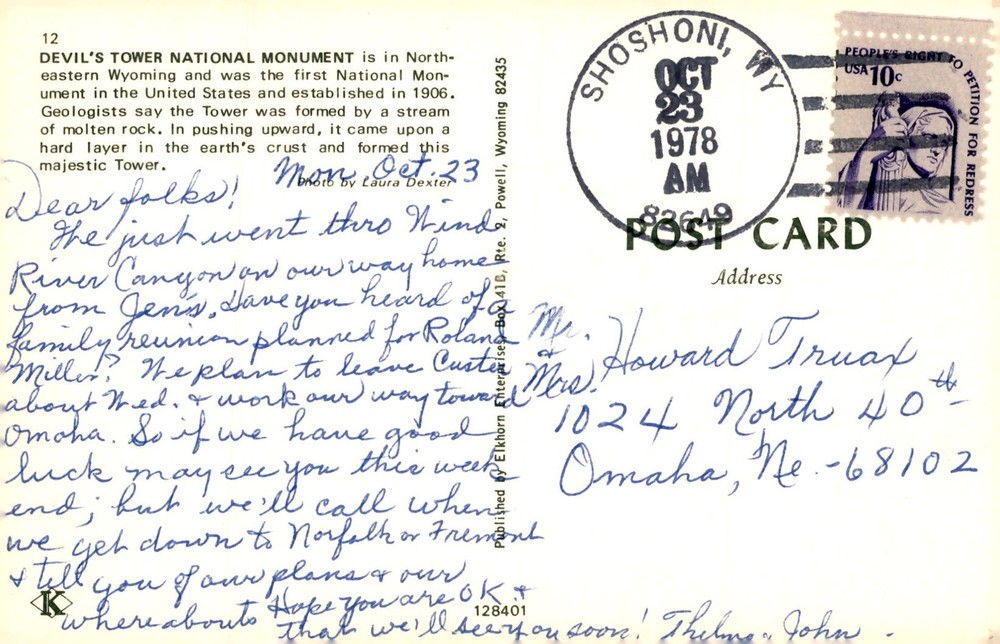 12
DEVIL'S TOWER NATIONAL MONUMENT is in North-
eastern Wyoming and was the first National Mon-
ument in the United States and established in 1906.
Geologists say the Tower was formed by a stream
of molten rock. In pushing upward, it came upon a
hard layer in the earth's crust and formed this
majestic Tower.
Photo by Laura Dexter
Mon. Oct. 23
Dear folks!
We just went thro Wind
River Canyon on our way home
from Jen's. Have you heard of a
family reunion planned for Roland
Miller? We plan to leave Custer
about Wed. & work our way toward
Omaha. So if we have good
luck may see you this week
end; but we'll call when
we get down to Norfolk or Fremont
& tell you of our plans & our
whereabouts Hope you are OK &
that we'll see you soon! Thelma & John
K
128401
Published by Elkhorn Enterprises, Box 41B, Rte. 2, Powell, Wyoming 82435
SHOSHONI, WY
OCT
23
1978
AM
82649
PEOPLE'S RIGHT TO PETITION FOR REDRESS
USA 10c
POST CARD
Address
Mr.
&
Mrs. Howard Truax
1024 North 40th
Omaha, Ne. - 68102